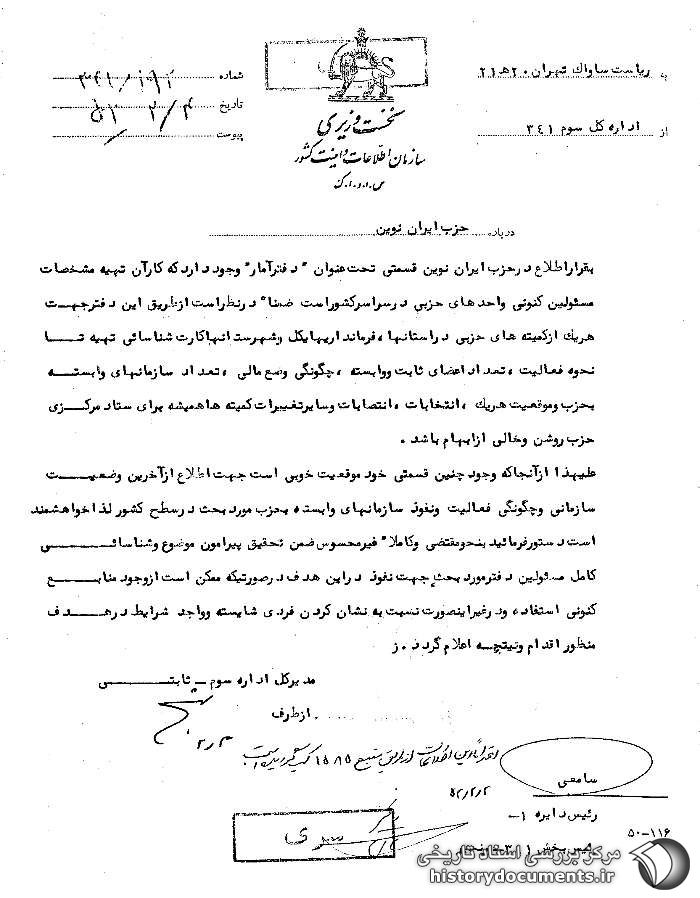 به ریاست ساواک تهران ۲۰ه۲۱
از اداره کل سوم ۳۴۱
نخست وزیری
سازمان اطلاعات و امنیت کشور
س.ا.و.ا.ک
شماره
تاریخ
پیوست
درباره حزب ایران نوین
بقراراطلاع درحزب ایران نوین قسمتی تحت عنوان "دفترآمار" وجود دارد که کارآن تهیه مشخصات
مسئولین کنونی واحدهای حزبی درسراسرکشوراست ضمنا" درنظراست ازطریق این دفترجهت
هریک ازکمیته های حزبی دراستانها، فرمانداریهایکل وشهرستانها کارت شناسائی تهیه تا
نحوه فعالیت، تعداد اعضای ثابت ووابسته، چگونگی وضع مالی، تعداد سازمانهای وابسته
بحزب وموقعیت هریک، انتخابات، انتصابات وسایرتغییرات کمیته ها همیشه برای ستاد مرکزی
حزب روشن وخالی ازابهام باشد.
علیهذا ازآنجاکه وجود چنین قسمتی خود موقعیت خوبی است جهت اطلاع ازآخرین وضعیت
سازمانی وچگونگی فعالیت ونفوذ سازمانهای وابسته بحزب مورد بحث درسطح کشور لذا خواهشمند
است دستورفرمائید بنحومقتضی وکاملا" غیرمحسوس ضمن تحقیق پیرامون موضوع وشناسائی
کامل مسئولین دفترمورد بحث جهت نفوذ دراین هدف درصورتیکه ممکن است ازوجود منابع
کنونی استفاده ودرغیراینصورت نسبت به نشان کردن فردی شایسته وواجد شرایط درهدف
منظور اقدام ونتیجه اعلام گردد. ز
مدیرکل اداره سوم - ثابتی
ازطرف
سامعی
رئیس دایره ۱-
۵۰-۱۱۶
سری
مرکز بررسی اسناد تاریخی
historydocuments.ir